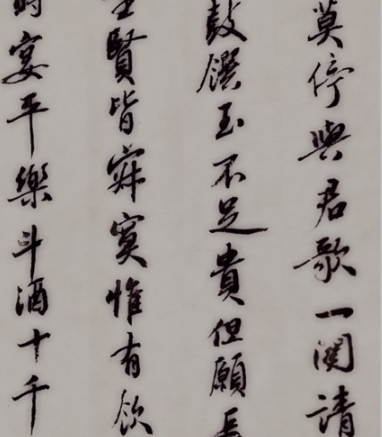 莫停與君歌一闋請
鼓饌玉不足貴但願長
賢皆寂寞惟有飲
時宴平樂斗酒十千